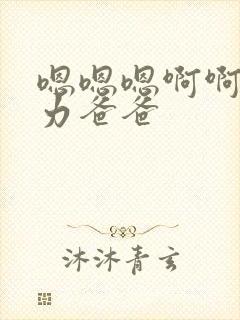 嗯嗯嗯啊啊
力爸爸
沐沐青玄